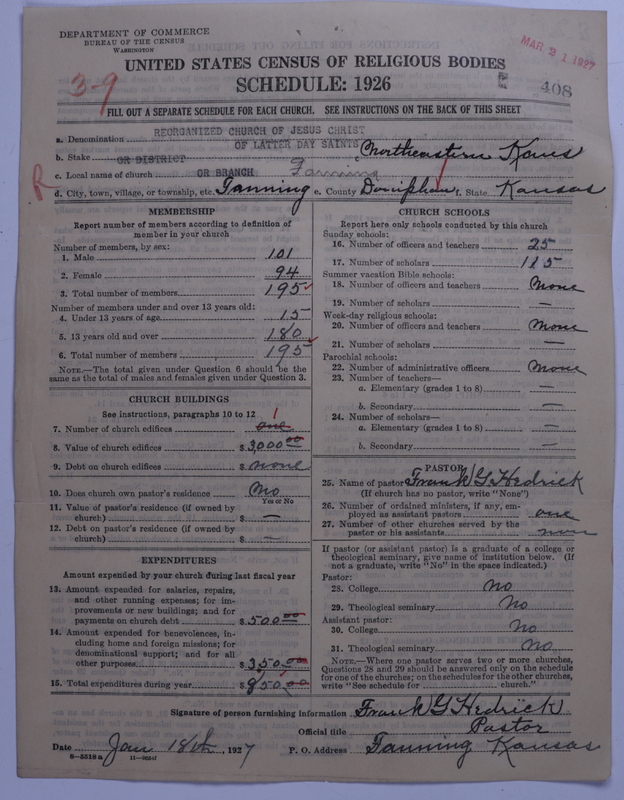 DEPARTMENT OF COMMERCE
BUREAU OF THE CENSUS
WASHINGTON
MAR 21 1927
UNITED STATES CENSUS OF RELIGIOUS BODIES
SCHEDULE: 1926
3-9
408
FILL OUT A SEPARATE SCHEDULE FOR EACH CHURCH. SEE INSTRUCTIONS ON THE BACK OF THIS SHEET
a. Denomination REORGANIZED CHURCH OF JESUS CHRIST
OF LATTER DAY SAINTS
b. Stake OR DISTRICT Northeastern Kans
c. Local name of church OR BRANCH Fanning
R
d. City, town, village, or township, etc. Fanning e. County Doniphan f. State Kansas
MEMBERSHIP
Report number of members according to definition of
member in your church
Number of members, by sex:
1. Male 101
2. Female 94
3. Total number of members 195
Number of members under and over 13 years old:
4. Under 13 years of age 15
5. 13 years old and over 180
6. Total number of members 195
NOTE.—The total given under Question 6 should be the
same as the total of males and females given under Question 3.
CHURCH BUILDINGS
See instructions, paragraphs 10 to 12
1
7. Number of church edifices one
8. Value of church edifices $3,000 00
9. Debt on church edifices $ none
10. Does church own pastor's residence No
Yes or No
11. Value of pastor's residence (if owned by
church) $ —
12. Debt on pastor's residence (if owned by
church) $ —
EXPENDITURES
Amount expended by your church during last fiscal year
13. Amount expended for salaries, repairs,
and other running expenses; for im-
provements or new buildings; and for
payments on church debt $500 00
14. Amount expended for benevolences, in-
cluding home and foreign missions; for
denominational support; and for all
other purposes $350 00
15. Total expenditures during year $850 00
CHURCH SCHOOLS
Report here only schools conducted by this church
Sunday schools:
16. Number of officers and teachers 25
17. Number of scholars 115
Summer vacation Bible schools:
18. Number of officers and teachers None
19. Number of scholars —
Week-day religious schools:
20. Number of officers and teachers None
21. Number of scholars —
Parochial schools:
22. Number of administrative officers None
23. Number of teachers—
a. Elementary (grades 1 to 8) —
b. Secondary —
24. Number of scholars—
a. Elementary (grades 1 to 8) —
b. Secondary —
PASTOR
25. Name of pastor Frank G Hedrick
(If church has no pastor, write "None")
26. Number of ordained ministers, if any, em-
ployed as assistant pastors one
27. Number of other churches served by the
pastor or his assistants none
If pastor (or assistant pastor) is a graduate of a college or
theological seminary, give name of institution below. (If
not a graduate, write "No" in the space indicated.)
Pastor:
28. College No
29. Theological seminary No
Assistant pastor:
30. College No
31. Theological seminary No
NOTE.—Where one pastor serves two or more churches,
Questions 28 and 29 should be answered only on the schedule
for one of the churches; on the schedules for the other churches,
write "See schedule for ........ church."
Signature of person furnishing information Frank G Hedrick
Official title Pastor
Date Jan 18th, 1927 P. O. Address Fanning Kansas
8-5518a